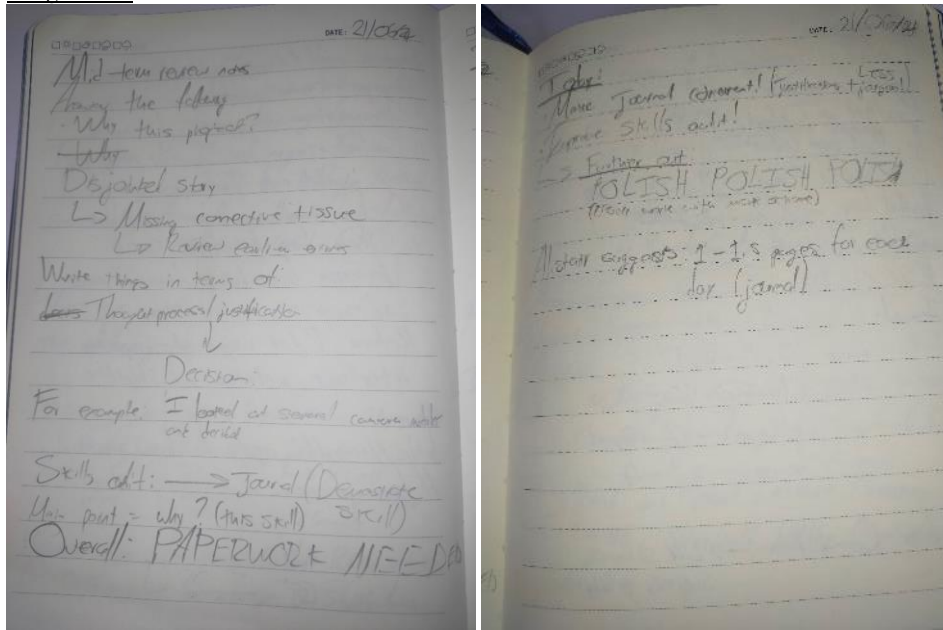 DATE: 21/06/24
Mid-term review notes
the following
Why this project?
Why
Disjointed story
↳ Missing connective tissue
↳ Review earlier
Write things in terms of
Thought process/justification
↓
Decision:
For example, I looked at several camera
and decided
Skills audit: → Journal (Demonstrate
Skill)
Main point = why? (this skill)
Overall: PAPERWORK NEEDED
DATE: 21/06/24
More Journal (justifications + Less
Improve Skills audit!
→ Further out
POLISH POLISH POLISH
Alistair suggests 1-1.5 pages for each
day (journal)